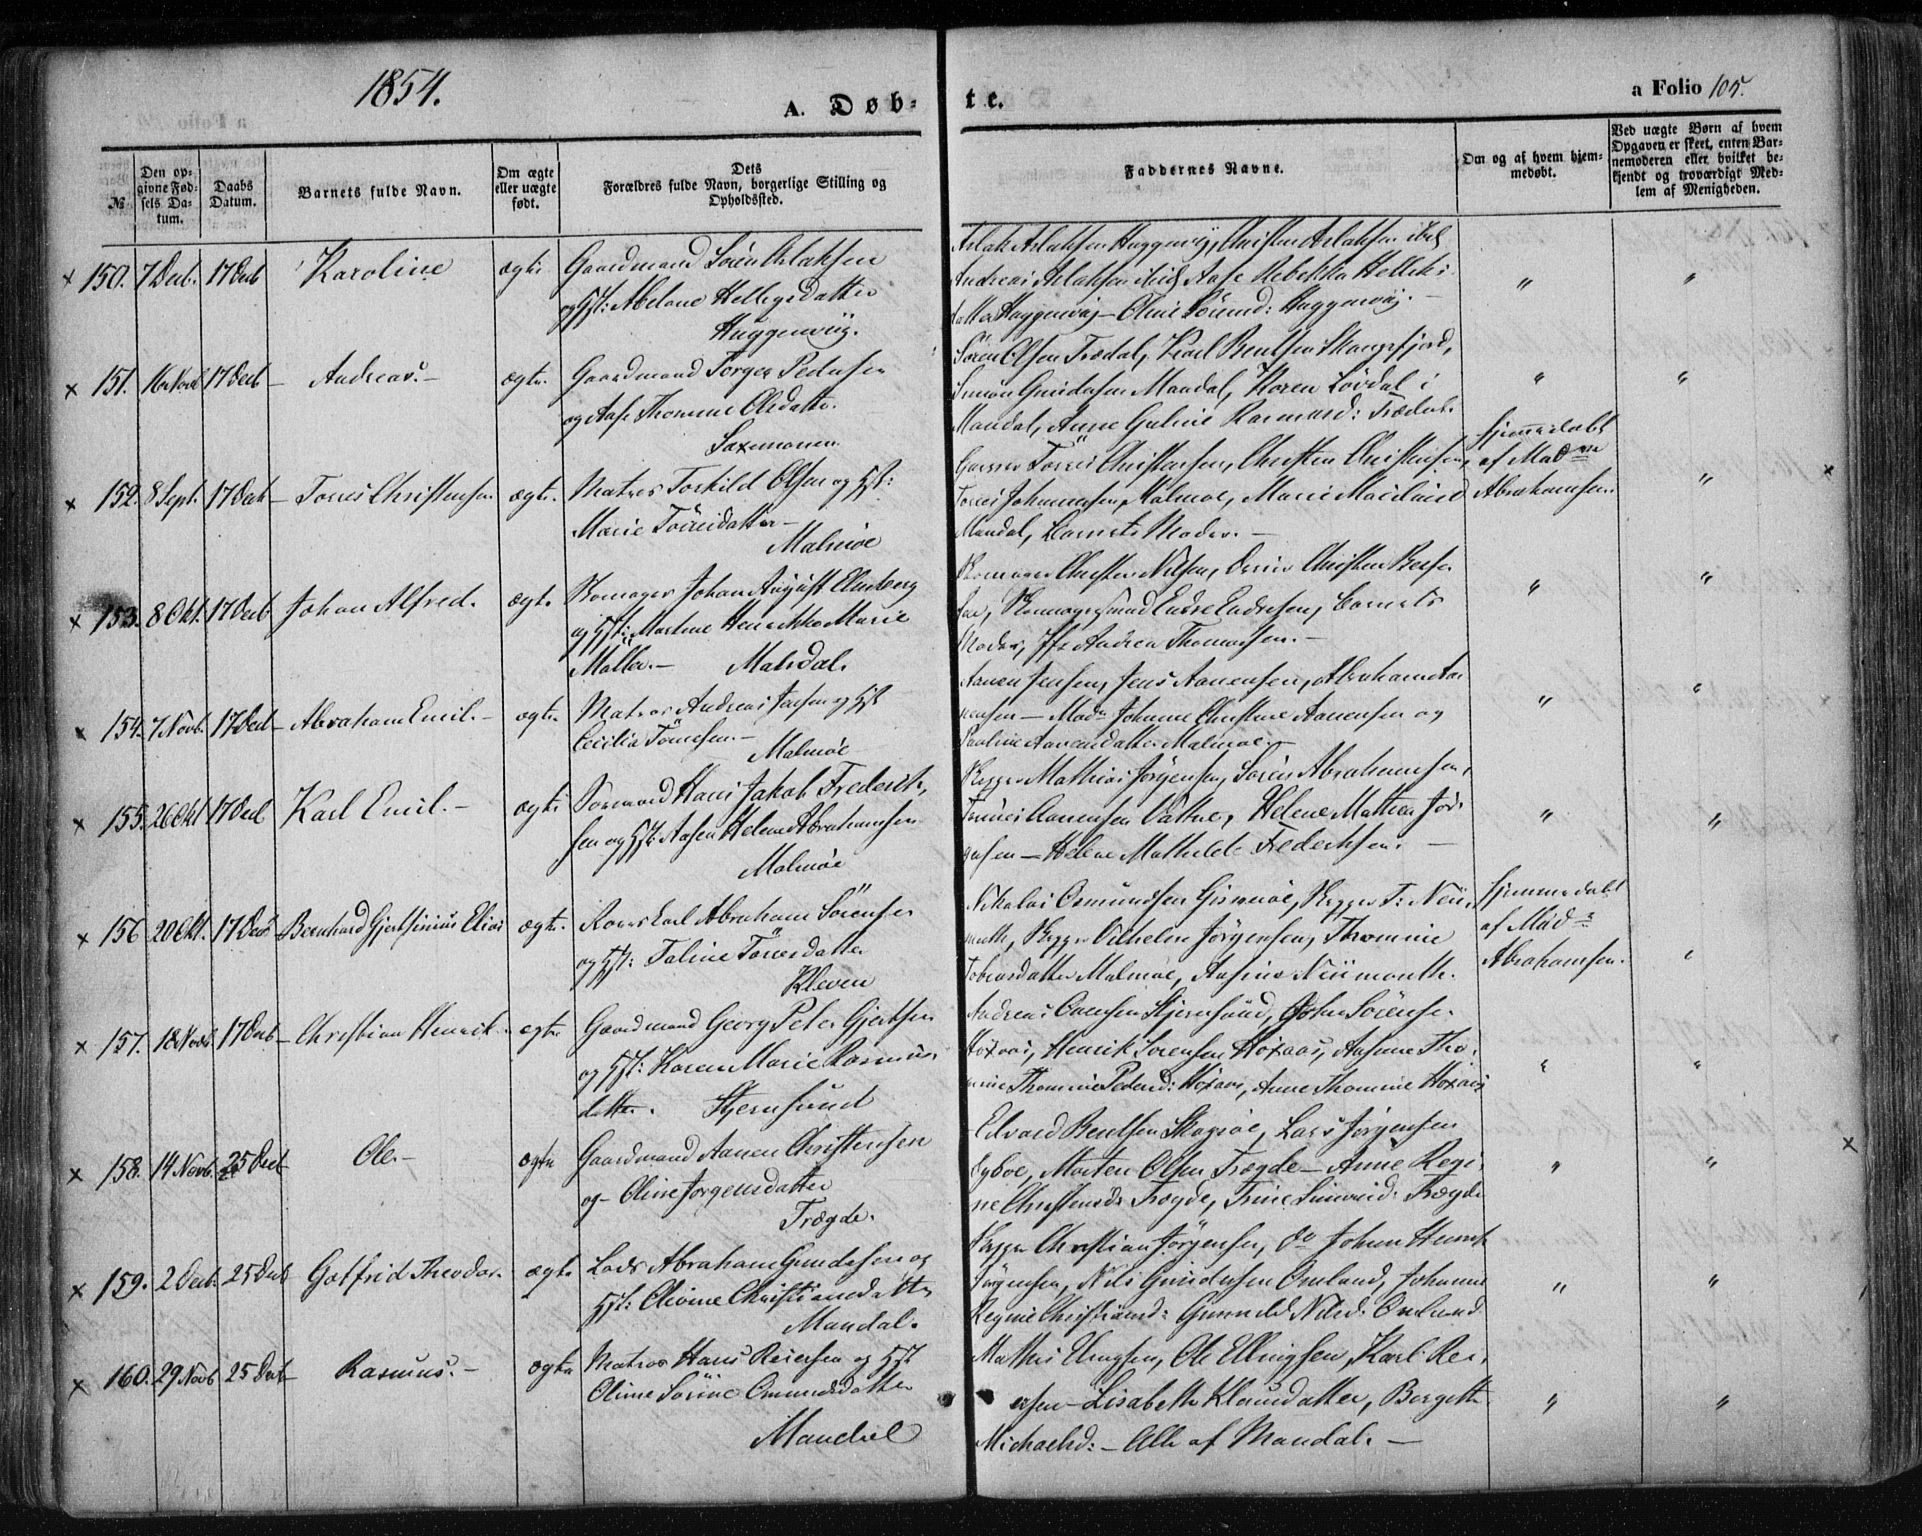 1854.
A. Døb-
te.
a Folio 105.
№
Den op-
givne Fød-
sels Da-
tum.
Daabs
Datum.
Barnets fulde Navn.
Om ægte
eller uægte
født.
Dets
Forældres fulde Navn, borgerlige Stilling og
Opholdssted.
Faddernes Navne.
Om og af hvem hjem-
medøbt.
Ved uægte Børn af hvem
Opgaven er skeet, enten Bar-
nemoderen eller hvilket be-
kjendt og troværdigt Med-
lem af Menigheden.
× 150. 7 Decb. 17 Decb Karoline ægte Gaardmand Sören Aslaksen
og Hst: Abelone Helligsdatter
Huggenvig.
Aslak Aslaksen Huggenvig, Christen Aslaksen ibd
Andreas Aslaksen ibid, Aase Rebekka Helleks
datter Huggenvig – Oline Sörensd: Huggenvig. – " "
× 151. 16 Novb 17 Decb – Andreas. – ægte. Gaardmand Torger Pedersen
og Aase Thomine Olsdatter
Saxemonen
Sören Olsen Trædal, Karl Bentsen Skogsfjord,
Simon Gundersen Mandal, Koren Lövdal i
Mandal, Anne Guline Rasmusd: Trædal. " "
× 152. 8 Sept. 17 Decb – Torres Christensen ægte. Matros Torkild Olsen og Hst:
Marie Törresdatter –
Malmöe
Torres Christensen, Christen Christensen,
Torres Johannesen, Malmöe, Marie
Mandal, Barnets Moder. –
Hjemmedöbt
af Madme
Abrahamsen. "
× 153. 8 Okt. 17 Decb Johan Alfred. ægte Skomager Johan August Elmberg
og Hst: Martine Henrikke Marie
Möller. – Mandal.
Skomager Christen Nilsen, Christen
Skomagersvend Endre Endresen, Barnets
Moder, Jfr Andrea Thomassen. – " "
× 154. 7 Novb. 17 Decb – Abraham Emil. – ægte Matros Andreas Jensen og Hst
Cecilia Tönnesen. –
Malmöe
Aanen Jensen, Jens Aanensen, Abraham Aa
nensen – Madm Johanne Christine Aanensen og
Pauline Aanensdatter Malmöe. – " "
× 155. 26 Okt 17 Decb Karl Emil. – ægte Sömand Hans Jakob Frederik-
sen og Hst: Aasen Helene Abrahamsen
Malmöe
Skipper Mathias Jörgensen, Sören Abrahamsen,
Tönnes Aanensen Vatne, Helene Mathea Jör-
gensen – Helene Mathilde Frederiksen. – " "
× 156 20 Okt. 17 Decb Bernhard Gjert Elias ægte. Karl Abraham Sörensen
og Hst: Taline Törresdatter
Kleven
Nikolai Osmundsen Gismeröe, Skipper T. Neü-
month, Skipper Vilhelm Jörgensen, Thomine
Tobiasdatter Malmöe, Aasine Neümonth.
Hjemmedöbt
af Madm
Abrahamsen. "
× 157. 18 Novb 17 Decb – Christian Henrik. ægte Gaardmand Georg Peter Gjertsen
og Hst: Karen Marie Rasmus-
datter. Stjernsund
Andreas Stjernsund, John Sörensen
Höxaas, Henrik Sörensen Höxaas, Aasine Tho-
mine Thomine Pedersd: Höxaas, Anne Thomine Höxaas " "
× 158. 14 Novb. 25 Decb Ole – ægte Gaardmand Aanen Christensen
og – Oline Jörgensdatter
Trægde.
Edvard Bentsen Skogsöe, Lars Jörgensen
Ryböe, Morten Olsen Trægde – Anne Regi-
ne Christensd: Trægde, Trine Simonsd: Trægde " "
× 159. 2 Decb. 25 Decb Gotfrid Theodor. ægte Lods Abraham Gundersen og
Hst: Olivine Christiansdatter
Mandal.
Skipper Christian Jörgensen, do Johan Henrik
Jörgensen, Nils Gundersen Omland, Johanne
Regine Christiansd: Gunnild Nilsd: Omland " "
× 160. 29 Novb 25 Decb Rasmus. – ægte Matros Hans Reiersen og Hst
Oline Sörine Omundsdatter
Mandal
Mathis Elingsen, Ole Ellingsen, Karl Rei-
ersen – Lisabeth Klausdatter, Bergethe
Michaelsd: – Alle af Mandal. – " "